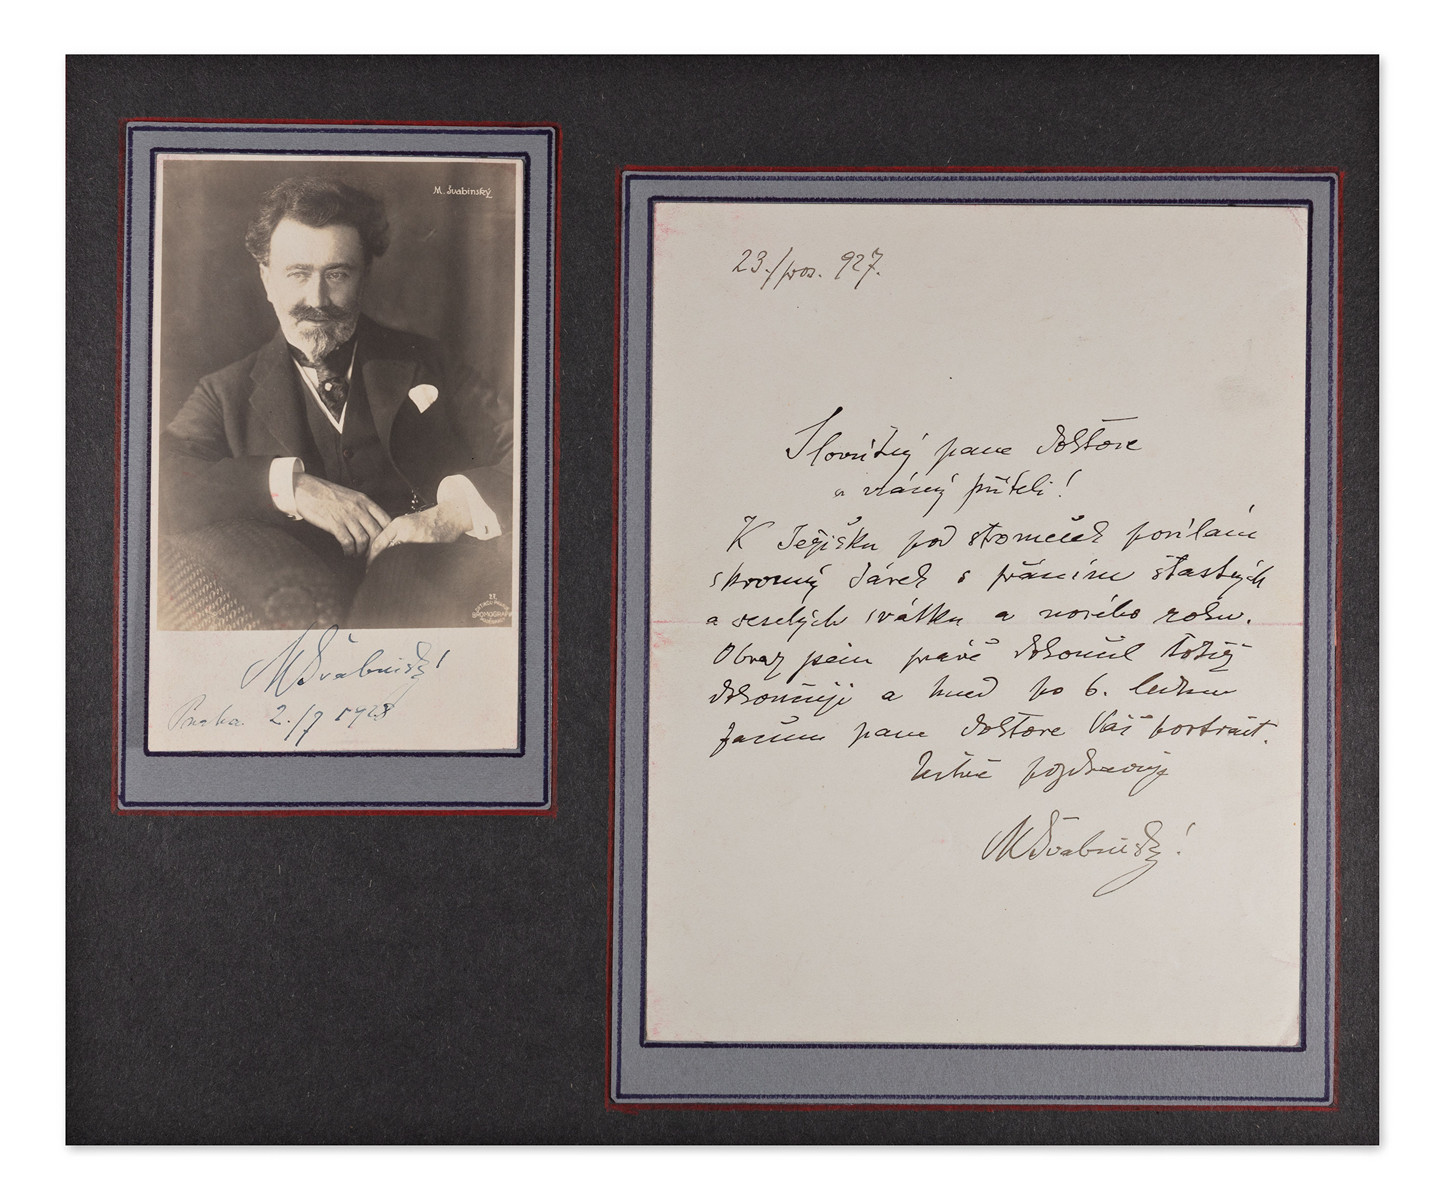 M. Švabinský
BROMOGRAFIA
MŠvabinský!
Praha 2./7 1928
23./pros. 927.
Slovutný pane doktore
a vzácný příteli!
K Ježíšku pod stromeček posílám
skromný dárek s přáním šťastných
a veselých svátků a nového roku.
Obraz jsem právě dokončil totiž
dokončuji a hned po 6. lednu
začnu pane doktore Váš portrait.
Uctivě pozdravuje
MŠvabinský!